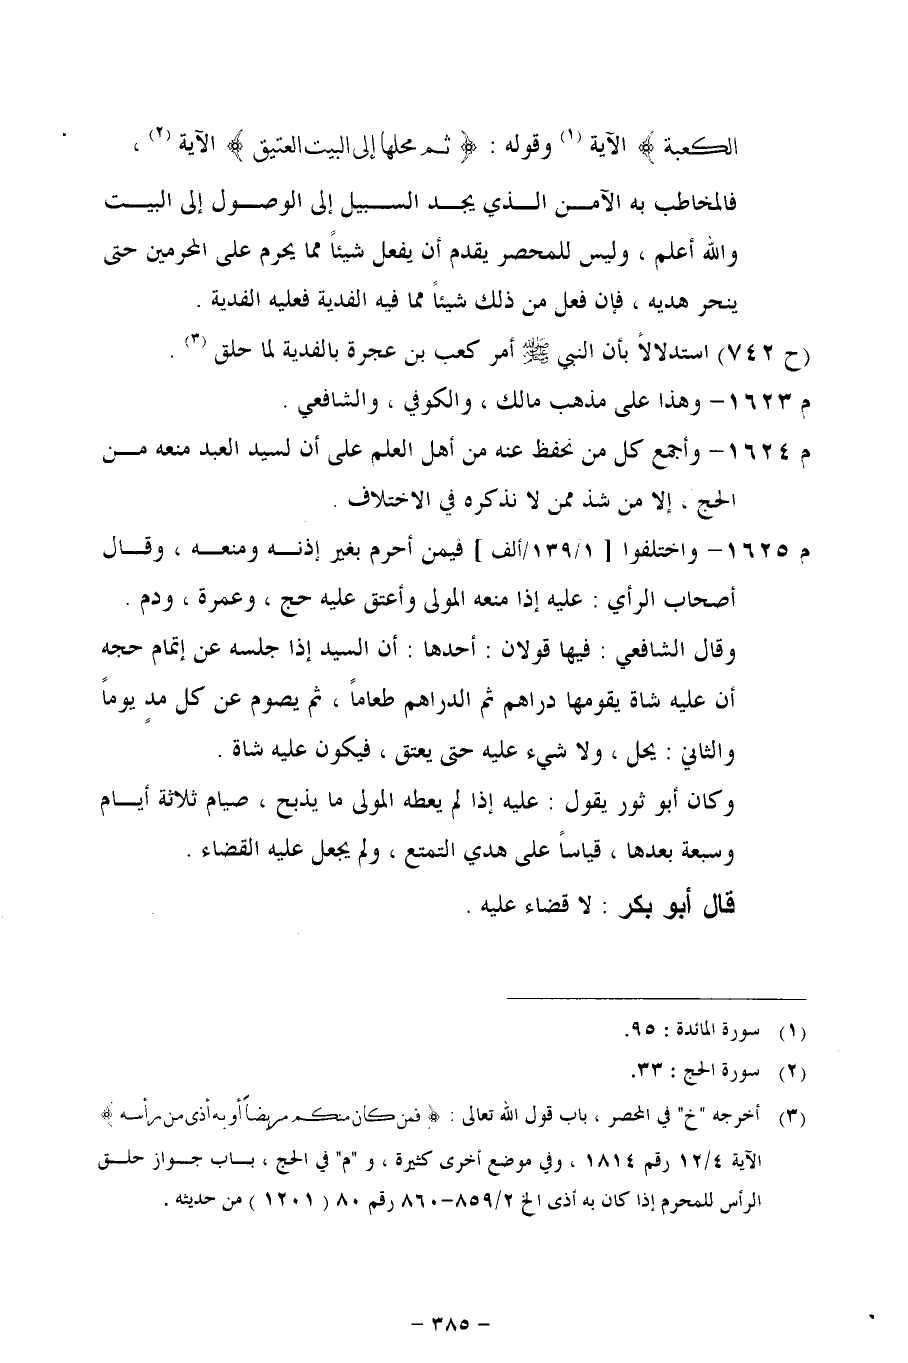 الكعبة ﴾ الآية (١) وقوله : ﴿ ثم محلها إلى البيت العتيق ﴾ الآية (٢) ،
فالمخاطب به الآمن الذي يجد السبيل إلى الوصول إلى البيت
والله أعلم ، وليس للمحصر يقدم أن يفعل شيئاً مما يحرم على المحرمين حتى
ينحر هديه ، فإن فعل من ذلك شيئاً مما فيه الفدية فعليه الفدية .
(ح ٧٤٢) استدلالاً بأن النبي ﷺ أمر كعب بن عجرة بالفدية لما حلق (٣) .
م ١٦٢٣- وهذا على مذهب مالك ، والكوفي ، والشافعي .
م ١٦٢٤- وأجمع كل من نحفظ عنه من أهل العلم على أن لسيد العبد منعه من
الحج ، إلا من شذ ممن لا نذكره في الاختلاف .
م ١٦٢٥- واختلفوا [ ١٣٩/١/ألف ] فيمن أحرم بغير إذنه ومنعه ، وقال
أصحاب الرأي : عليه إذا منعه المولى وأعتق عليه حج ، وعمرة ، ودم .
وقال الشافعي : فيها قولان : أحدها : أن السيد إذا جلسه عن إتمام حجه
أن عليه شاة يقومها دراهم ثم الدراهم طعاماً ، ثم يصوم عن كل مدٍ يوماً
والثاني : يحل ، ولا شيء عليه حتى يعتق ، فيكون عليه شاة .
وكان أبو ثور يقول : عليه إذا لم يعطه المولى ما يذبح ، صيام ثلاثة أيام
وسبعة بعدها ، قياساً على هدي التمتع ، ولم يجعل عليه القضاء .
قال أبو بكر : لا قضاء عليه .
(١) سورة المائدة : ٩٥.
(٢) سورة الحج : ٣٣.
(٣) أخرجه "خ" في المحصر ، باب قول الله تعالى : ﴿ فمن كان منكم مريضاً أو به أذى من رأسه ﴾
الآية ١٢/٤ رقم ١٨١٤ ، وفي موضع أخرى كثيرة ، و "م" في الحج ، باب جواز حلق
الرأس للمحرم إذا كان به أذى الخ ٨٥٩/٢-٨٦٠ رقم ٨٠ ( ١٢٠١ ) من حديثه .
- ٣٨٥ -